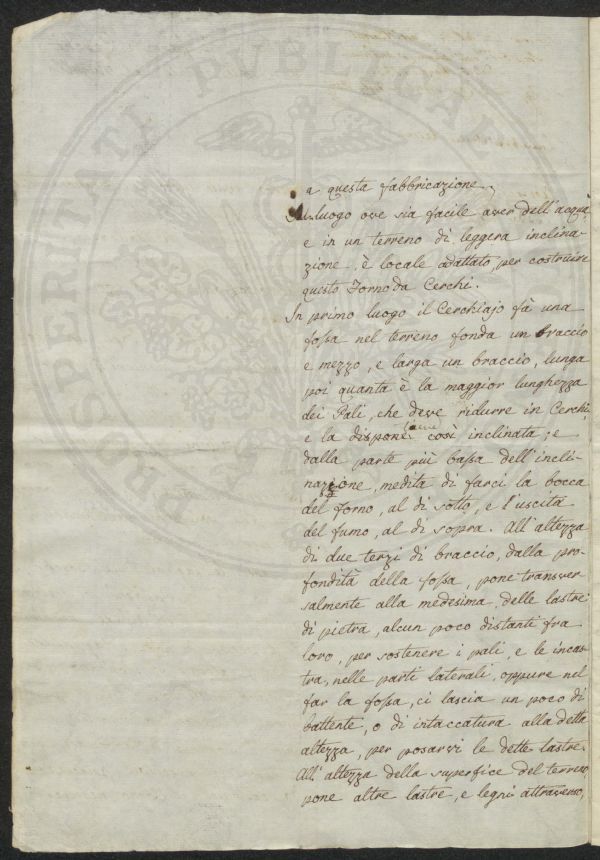 a questa fabbricazione.
In luogo ove sia facile aver dell'acqua,
e in un terreno di leggera inclina-
zione, è locale adattato, per costruire
questo Forno da Cerchi.
In primo luogo il Cerchiajo fà una
fossa nel terreno fonda un braccio
e mezzo, e larga un braccio, lunga
poi quanta è la maggior lunghezza
dei Pali, che deve ridurre in Cerchi,
e la dispone così inclinata; e
dalla parte più bassa dell'incli-
nazione, medita di farci la bocca
del Forno, al di sotto, e l'uscita
del fumo, al di sopra. All'altezza
di due terzi di braccio, dalla pro-
fondità della fossa, pone transver
salmente alla medesima, delle lastre
di pietra, alcun poco distanti fra
loro, per sostenere i pali, e le incas-
tra, nelle parti laterali, oppure nel
far la fossa, ci lascia un poco di
battente, o di intaccatura alla detta
altezza, per posarvi le dette lastre.
All'altezza della superfice del terreno
pone altre lastre, e legni attraverso,
PROSPERITATI PUBLICAE